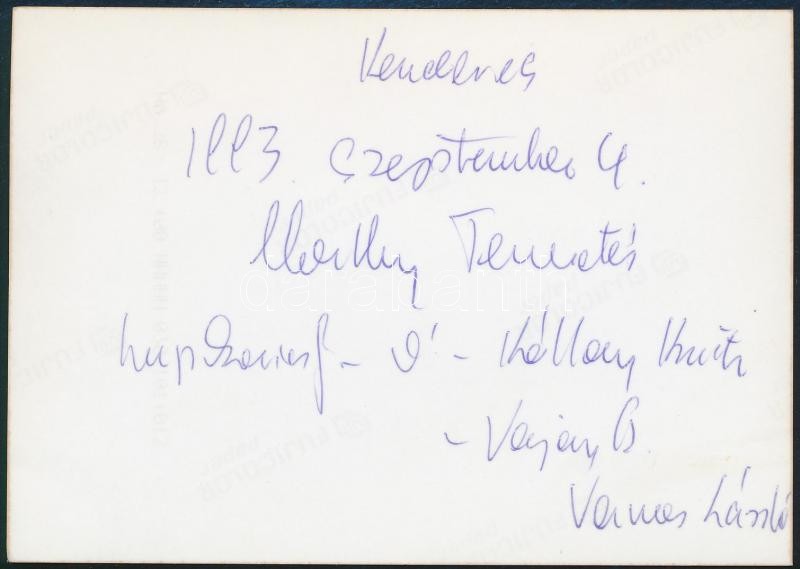 Kenderes
1993. Szeptember 4.
Horthy Temetés
- Ő - Kállay Kristóf
- Vajay Sz.
Vámos László